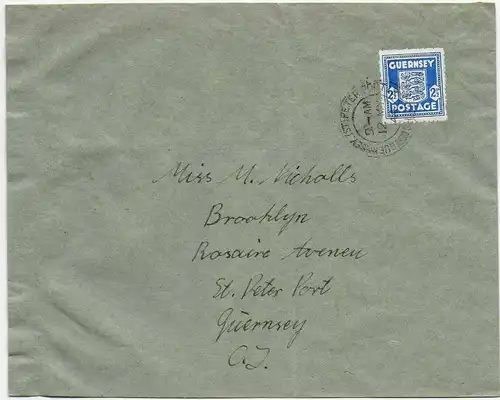 GUERNSEY
2½ 2½
POSTAGE
ST PETER PORT
GUERNSEY
AM
12
Miss M. Nicholls
Brooklyn
Rosaire Aveneu
St. Peter Port
Guernsey
C.I.